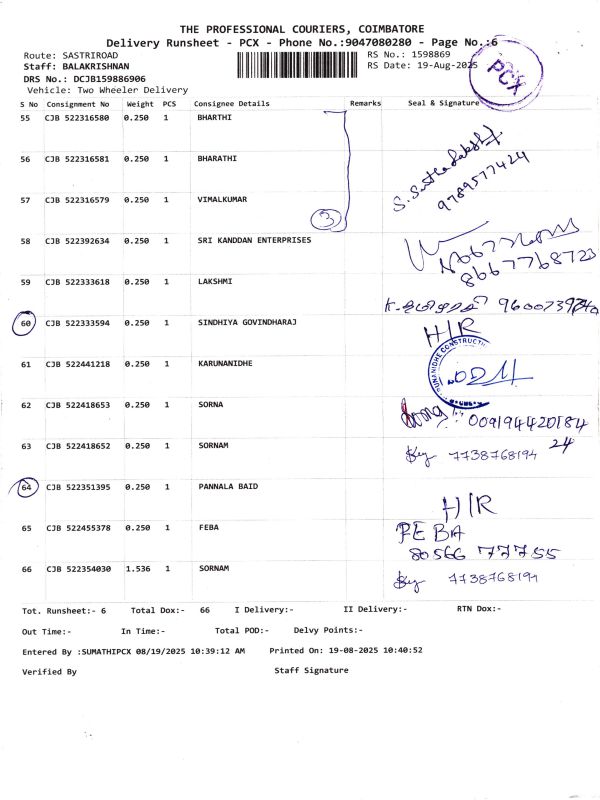 THE PROFESSIONAL COURIERS, COIMBATORE
Delivery Runsheet - PCX - Phone No.:9047080280 - Page No.:6
Route: SASTRIROAD RS No.: 1598869
Staff: BALAKRISHNAN RS Date: 19-Aug-2025
PCX
DRS No.: DCJB159886906
Vehicle: Two Wheeler Delivery
S No Consignment No Weight PCS Consignee Details Remarks Seal & Signature
55 CJB 522316580 0.250 1 BHARTHI
56 CJB 522316581 0.250 1 BHARATHI
9789577424
57 CJB 522316579 0.250 1 VIMALKUMAR
3
58 CJB 522392634 0.250 1 SRI KANDDAN ENTERPRISES
8667768723
59 CJB 522333618 0.250 1 LAKSHMI
60 CJB 522333594 0.250 1 SINDHIYA GOVINDHARAJ
H/R
61 CJB 522441218 0.250 1 KARUNANIDHE
62 CJB 522418653 0.250 1 SORNA
009194420184
24
63 CJB 522418652 0.250 1 SORNAM
7738768194
64 CJB 522351395 0.250 1 PANNALA BAID
H/R
65 CJB 522455378 0.250 1 FEBA
FEBA
80566 77755
66 CJB 522354030 1.536 1 SORNAM
7738768194
Tot. Runsheet:- 6 Total Dox:- 66 I Delivery:- II Delivery:- RTN Dox:-
Out Time:- In Time:- Total POD:- Delvy Points:-
Entered By :SUMATHIPCX 08/19/2025 10:39:12 AM Printed On: 19-08-2025 10:40:52
Verified By Staff Signature